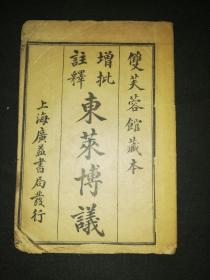 雙芙蓉館藏本
增批
註釋
東萊博議
上海廣益書局發行